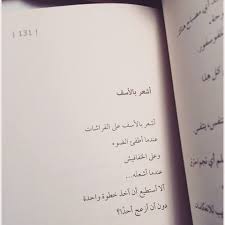 | 131 |
أشعر بالأسف
أشعر بالأسف على الفراشات
عندما أطفئ الضوء
وعلى الخفافيش
عندما أشعله...
ألا أستطيع أن أخذ خطوة واحدة
دون أن أزعج أحدًا؟
كل هذا